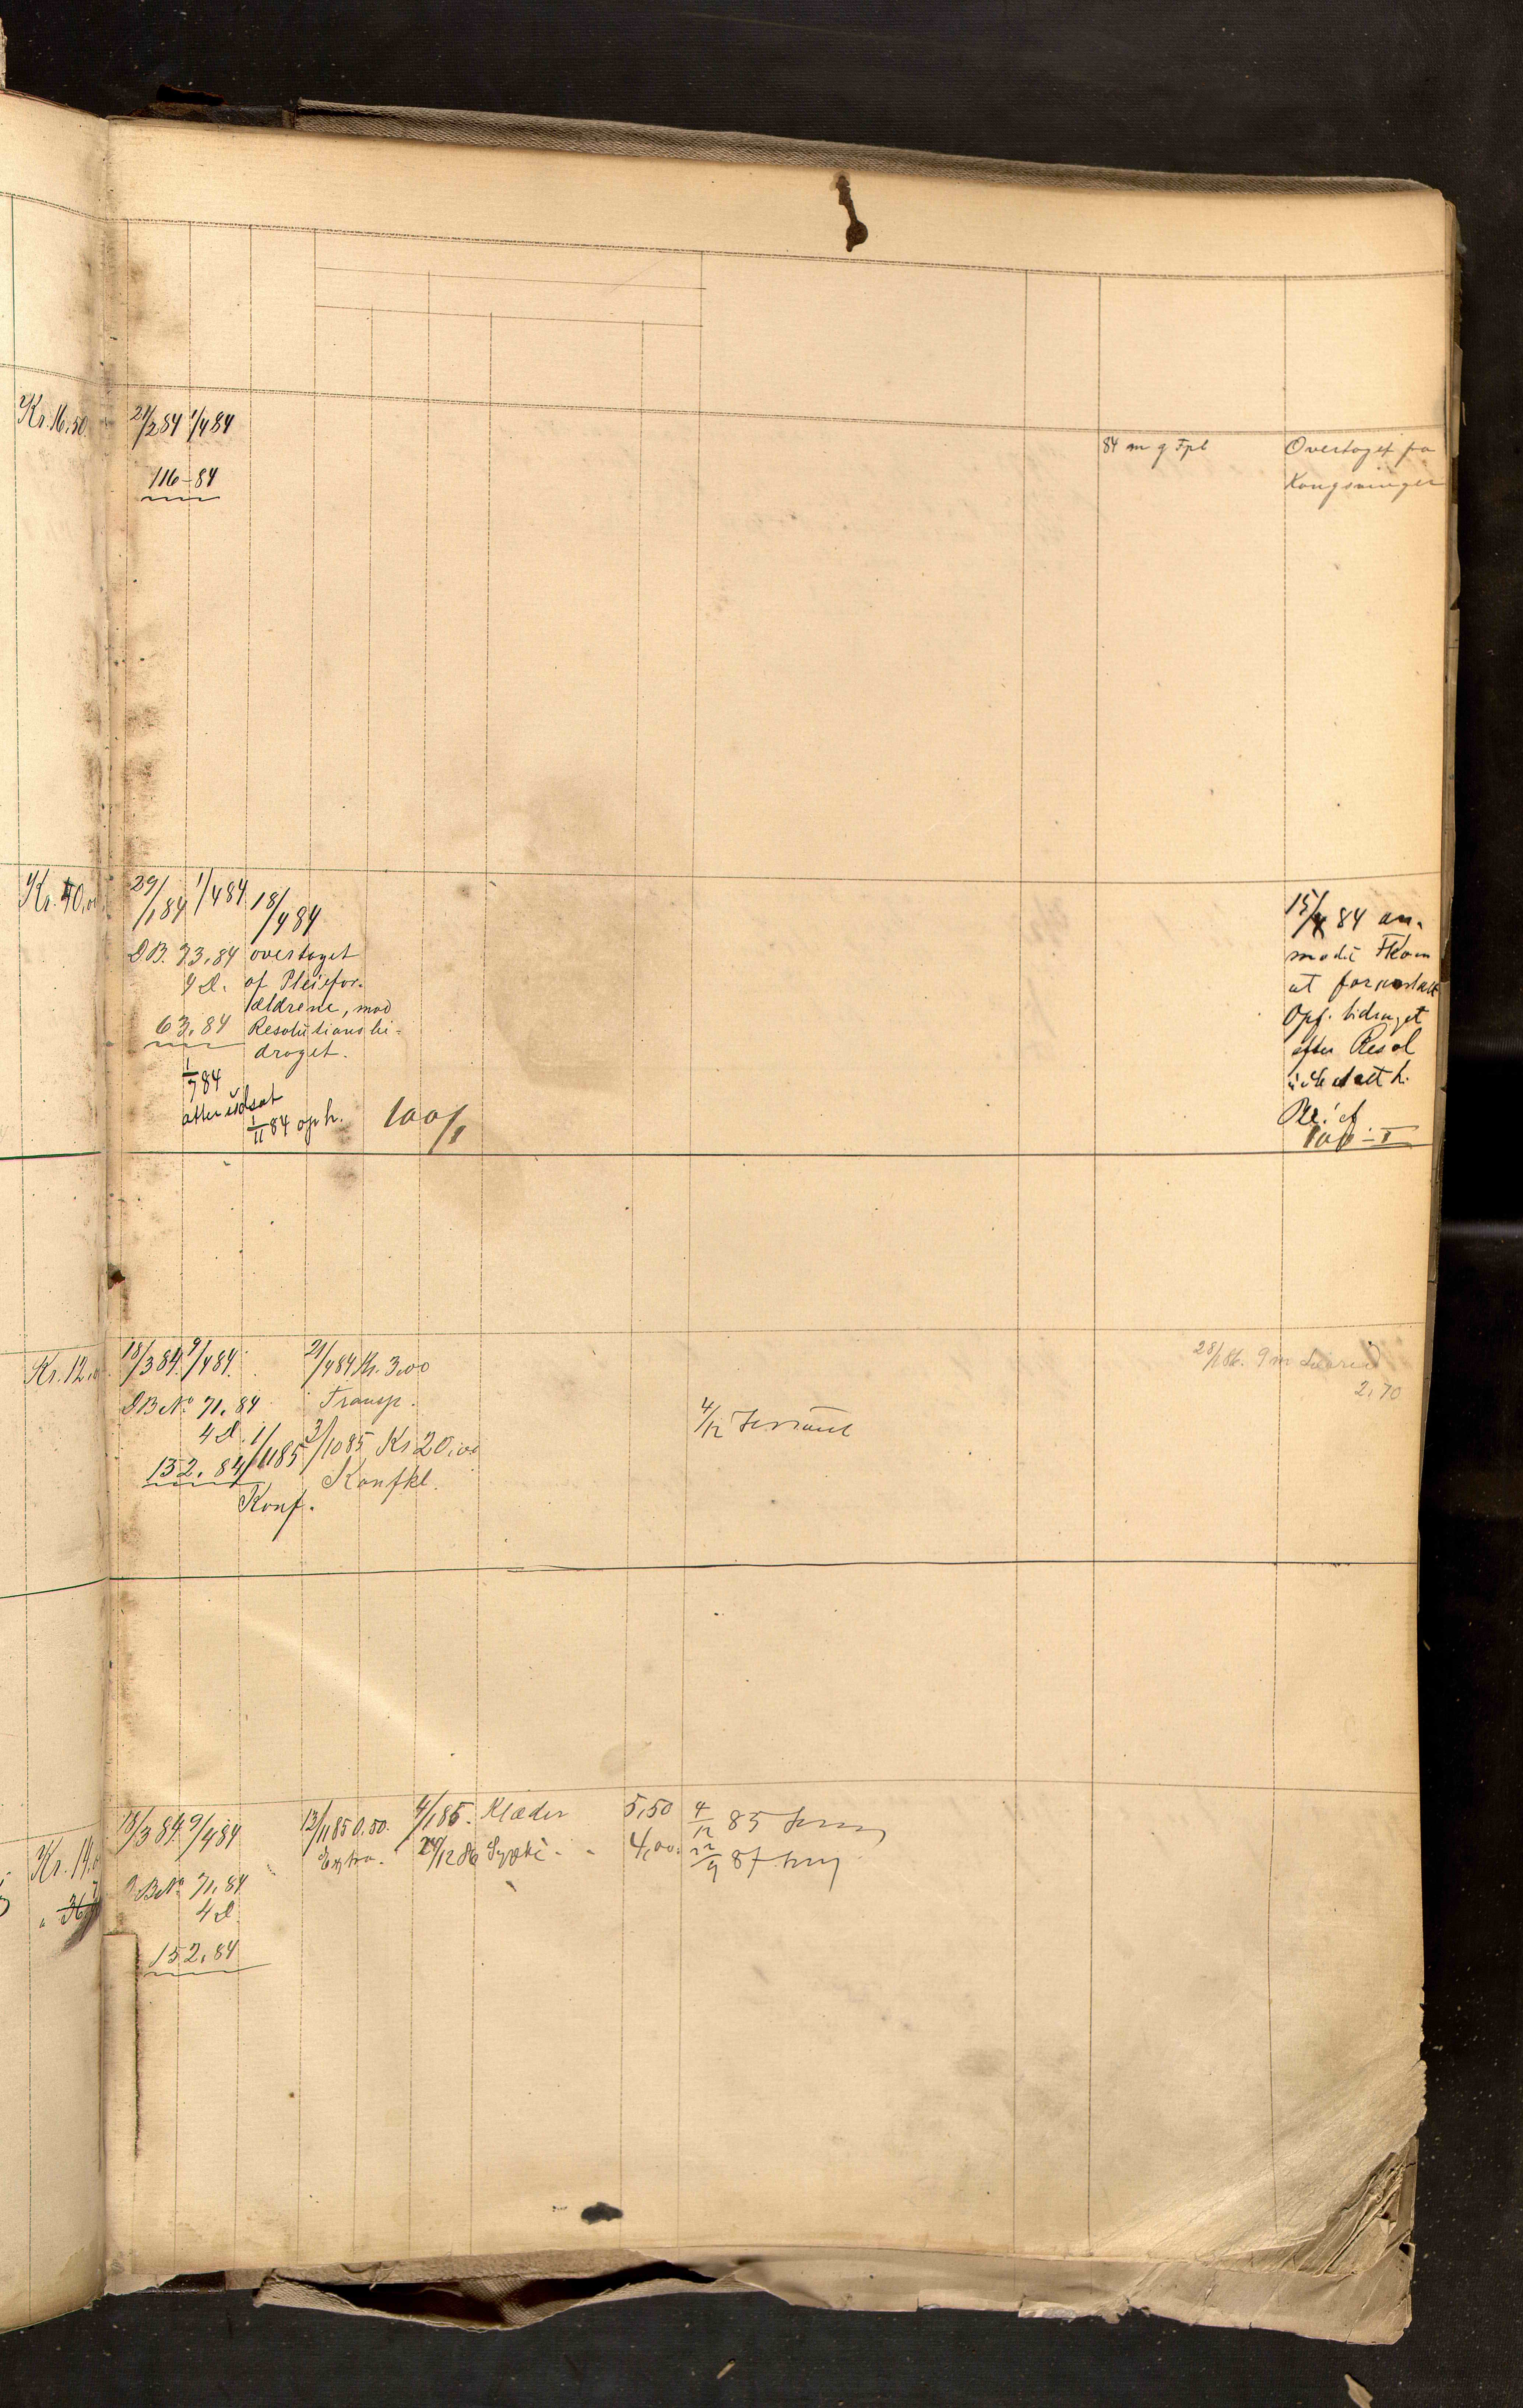 Kr. 16,50.
21/2 84 1/4 84
116-84
84 m g Fpl
Overtaget fra
Kongsvinger
Kr. 40,00
29/1 84 1/4 84 18/4 84
DB. 33,84 overtaget
4 D. af Pleiefor-
ældrene, mod
63,84 Resolutionsbi-
draget.
1/7 84
atter udsat
1/11 84 oph. 100/1
15/4 84 an-
mod
at
Opf. bidraget
efter Resol
100-I
Kr. 12,00
18/3 84. 9/4 84. 21/4 84 Kr. 3,00
DB No 71,84 Transp.
4 D. 1/11 85 3/10 85 Kr 20,00
152,84 Konfkl.
Konf.
4/12
28/1 86. 9 m
2,70
Kr. 14,00
18/3 84 9/4 84 12/11 85 0.50. 4/1 85. Klæder 5,50 4/12 85
Extra. 24/12 86 - - 4,00. 22/9 87
DB No 71,84
4 D.
152,84